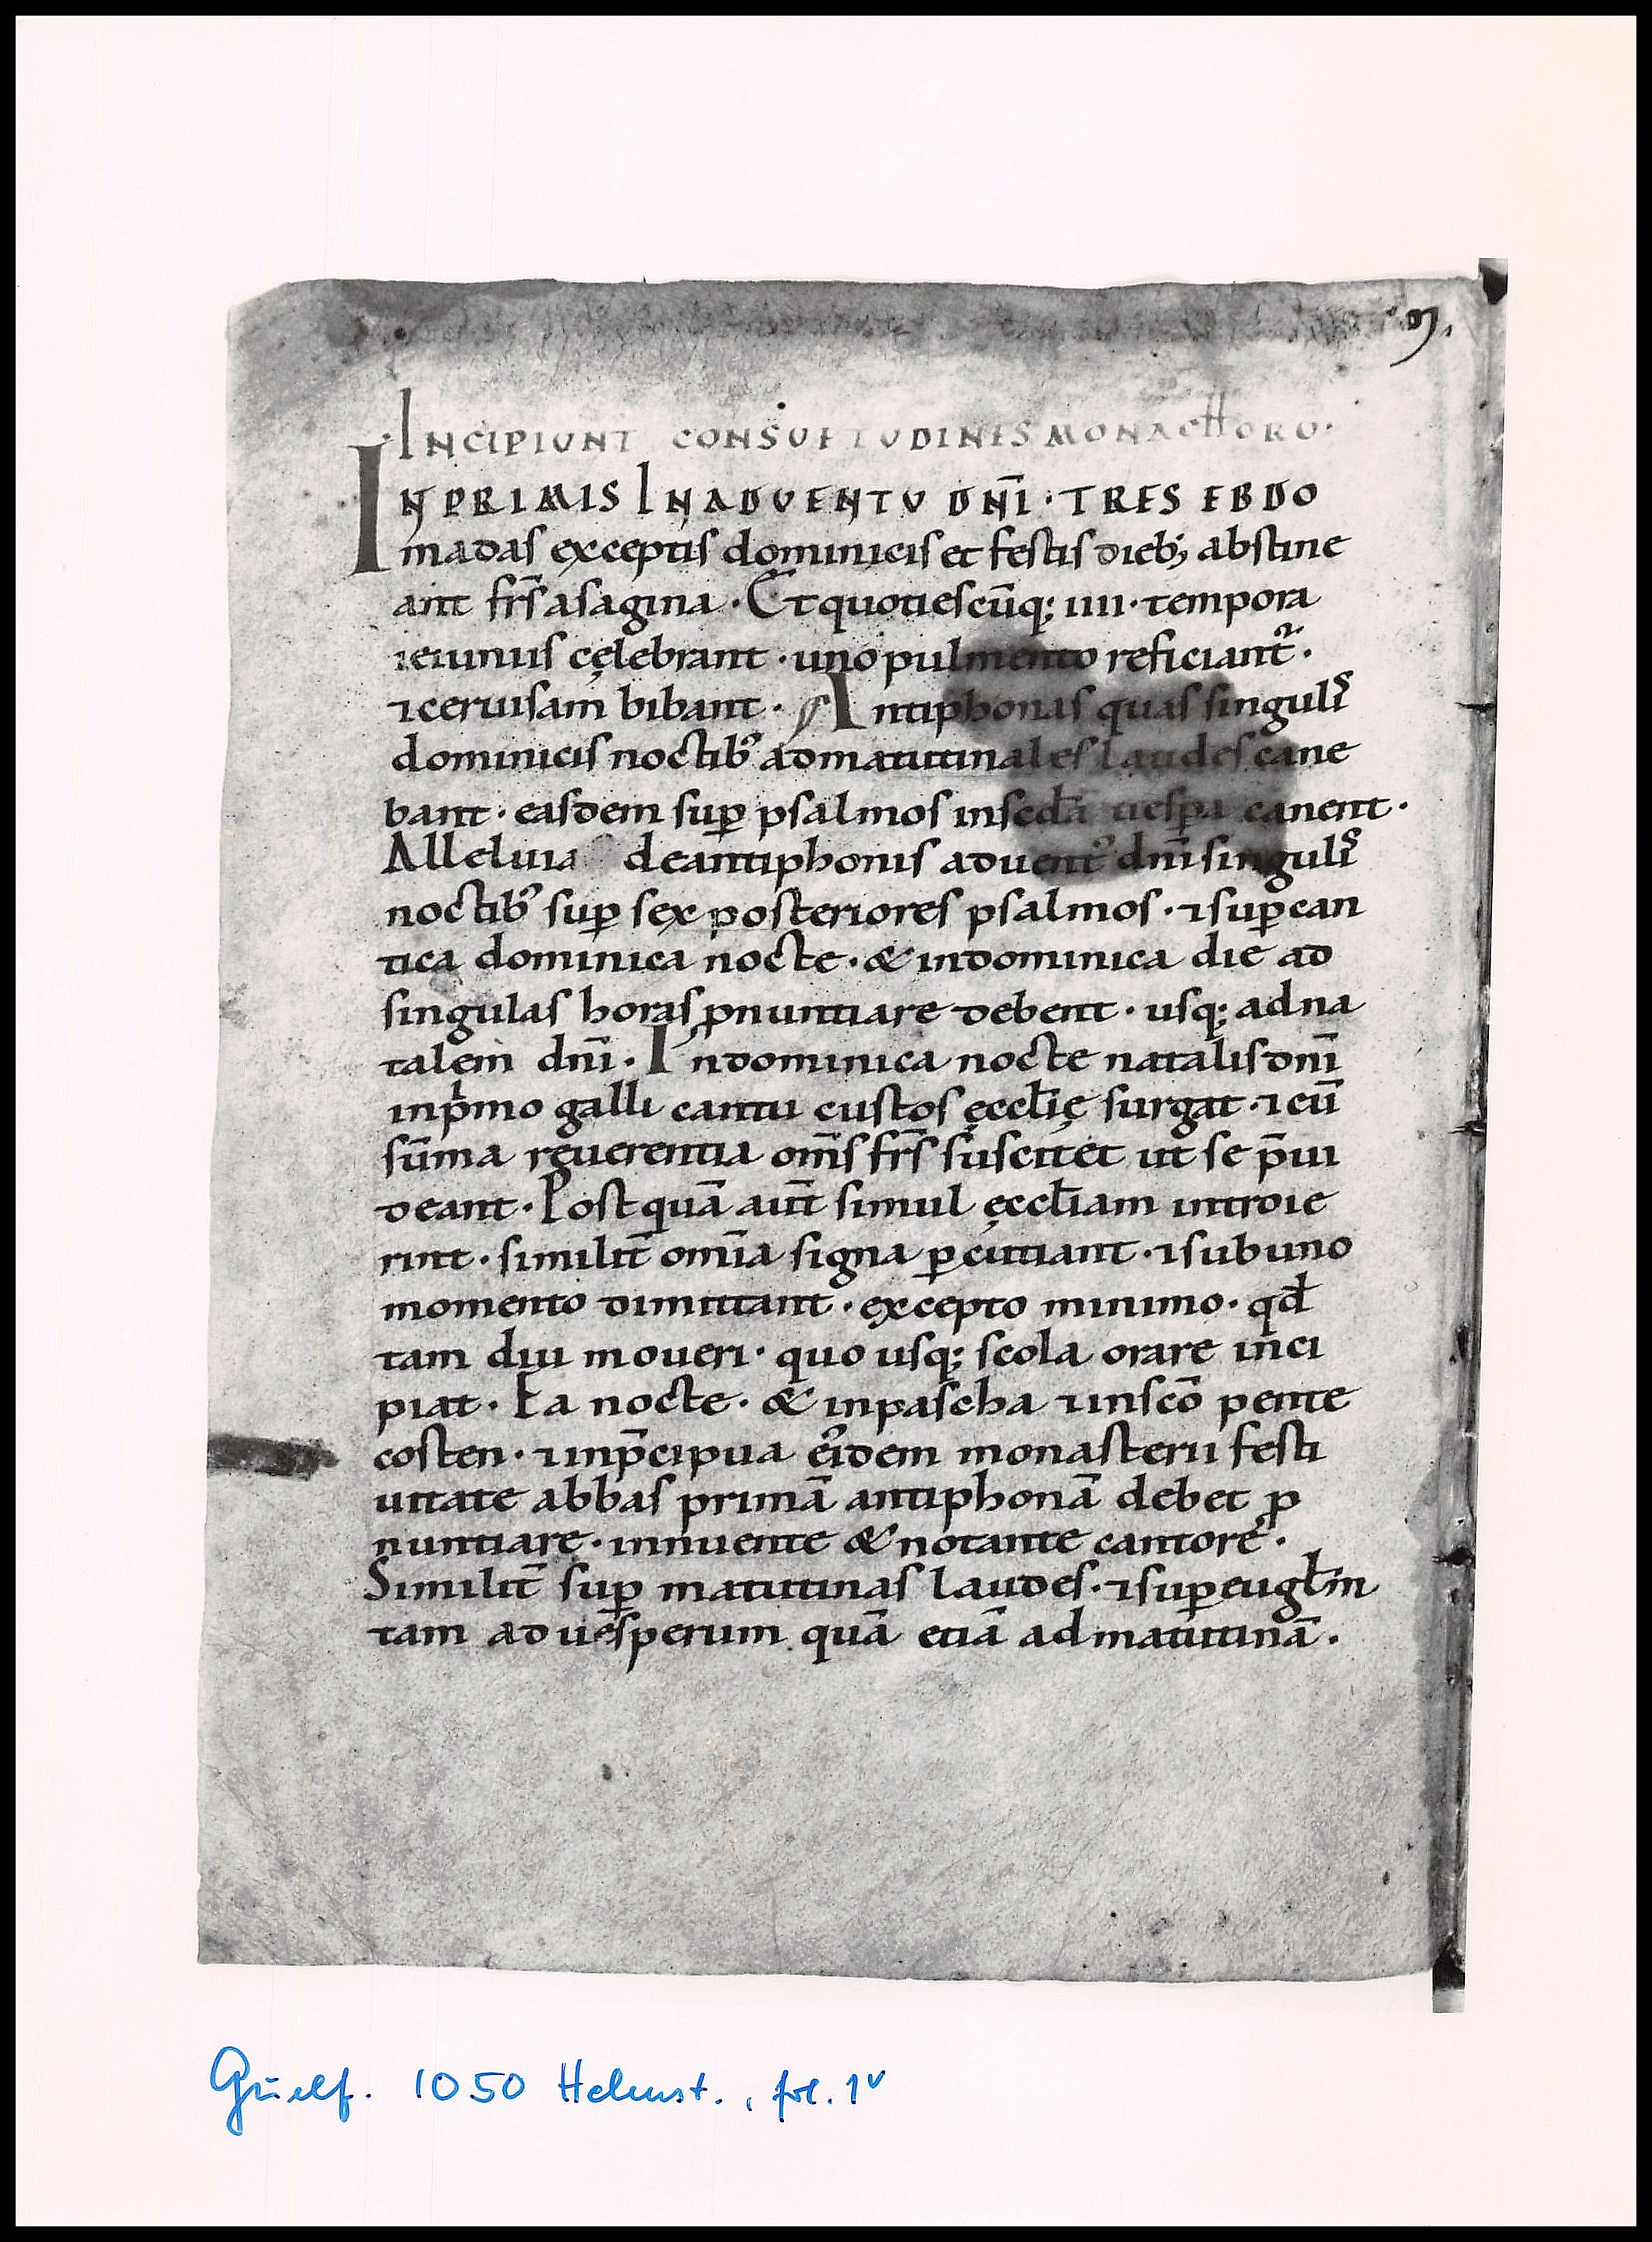 INCIPIUNT CONSUETUDINES MONACHORU·
INPRIMIS INADVENTV DN̄I · TRES EBDO
madas exceptis dominicis et festis dieb; abstine
ant fr̄s asagina · Et quotiescūq; iiii · tempora
ieiuniis cęlebrant · uno pulmento reficiant᷑ ·
⁊ ceruisam bibant · Antiphonas quas singulis
dominicis noctib᾿ admatutinales laudes cane
bant · easdem suꝑ psalmos insc̄da uesꝑa canent ·
Alleluia deantiphonis aduent᾿ dn̄i singulis
noctib᾿ suꝑ sex posteriores psalmos · ⁊ suꝑcan
tica dominica nocte · & indominica die ad
singulas horas ꝓnuntiare debent · usq; adna
talem dn̄i · Indominica nocte natalis dn̄i
inpͥmo galli cantu custos ęccłię surgat · ⁊ cū
sūma reuerentia om̄s fr̄s suscitet ut se p̄ui
deant · Postquā aut̄ simul ęccłiam introie
rint · similit̄ om̄ia signa ꝑcutiant · ⁊ subuno
momento dimittant · excepto minimo · qđ
tam diu moueri · quo usq; scola orare inci
piat · Ea nocte · & inpascha ⁊ insc̄o pente
costen · ⁊ inp̄cipua ei᾿dem monasterii festi
uitate abbas primā antiphonā debet ꝓ
nuntiare · innuente & notante cantore ·
Similit̄ suꝑ matutinas laudes · ⁊ suꝑeugłm
tam aduesperum quā etiā admatutinā ·
Guelf. 1050 Helmst., fol. 1v